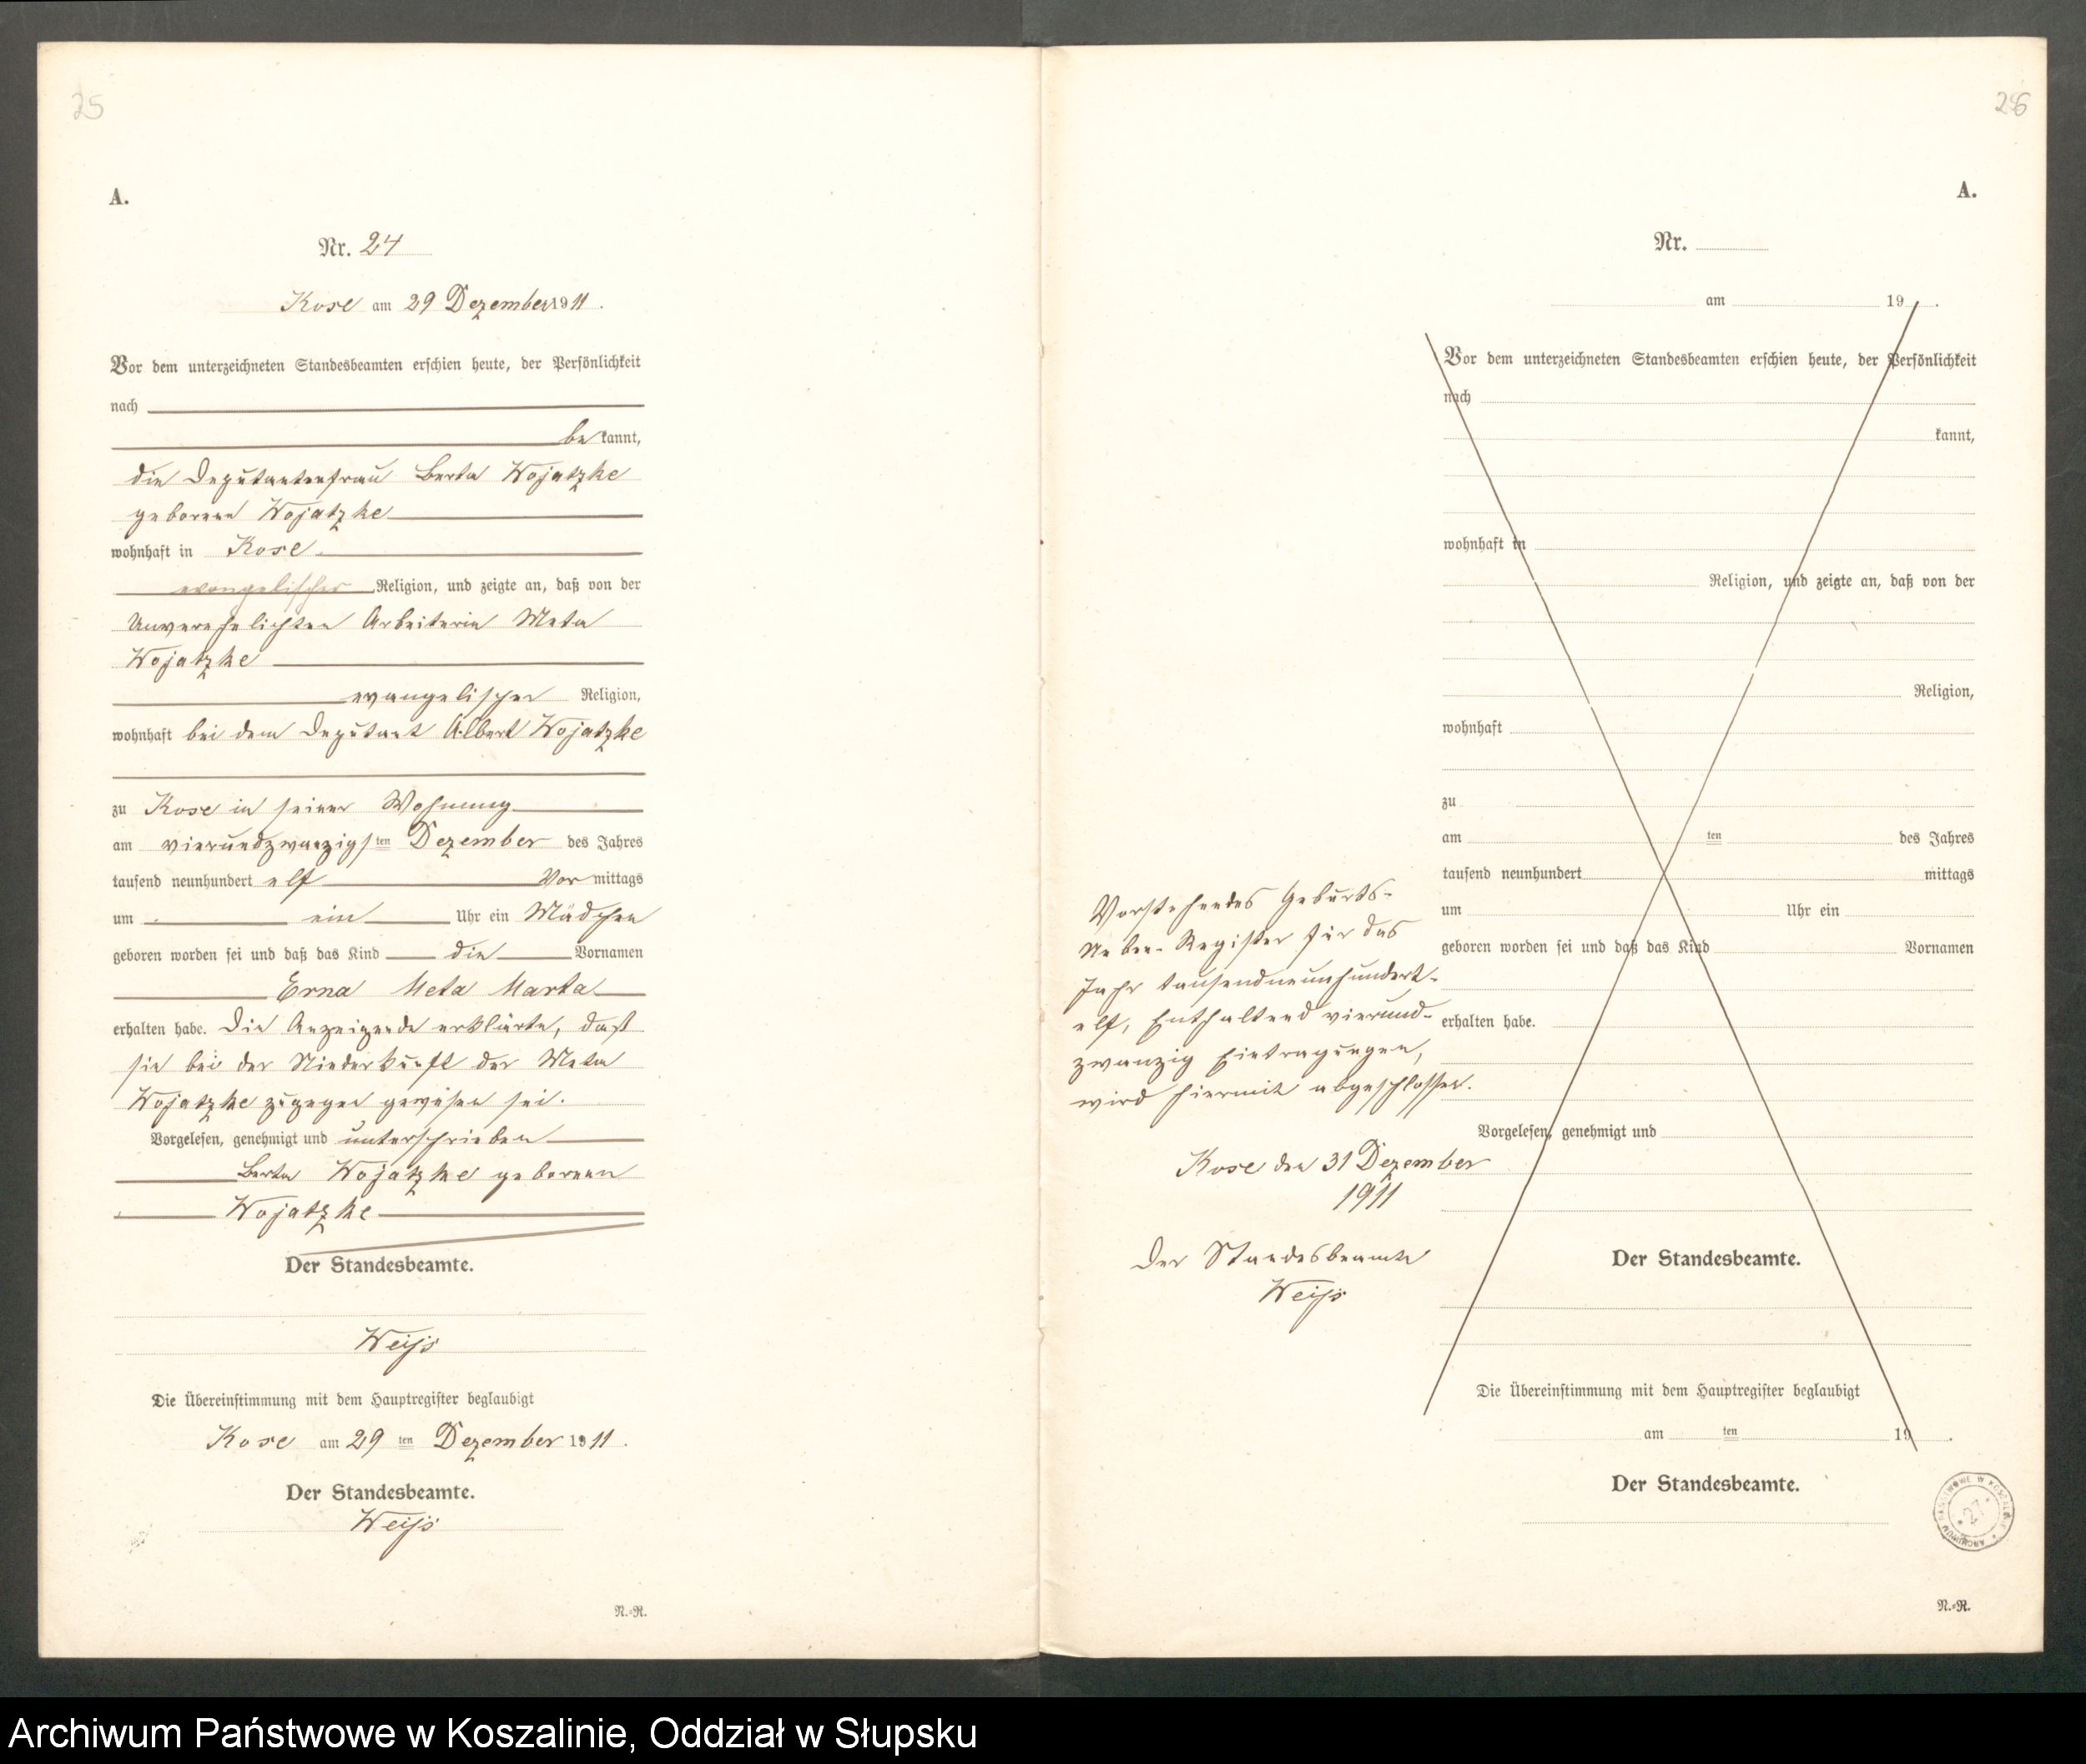 25
A.
Nr. 24
Kose am 29 Dezember 1911.
Vor dem unterzeichneten Standesbeamten erschien heute, der Persönlichkeit
nach
be kannt,
die Deputantenfrau Berta Wojatzke
geborene Wojatzke
wohnhaft in Kose
evangelischer Religion, und zeigte an, daß von der
Unverehelichten Arbeiterin Meta
Wojatzke
evangelischer Religion,
wohnhaft bei dem Deputant Albert Wojatzke
zu Kose in seiner Wohnung
am vierundzwanzigsten Dezember des Jahres
tausend neunhundert elf Vor mittags
um ein Uhr ein Mädchen
geboren worden sei und daß das Kind die Vornamen
Erna Meta Marta
erhalten habe. Die Anzeigende erklärte, daß
sie bei der Niederkunft der Meta
Wojatzke zugegen gewesen sei.
Vorgelesen, genehmigt und unterschrieben
Berta Wojatzke geborene
Wojatzke
Der Standesbeamte.
Weiß
Die Übereinstimmung mit dem Hauptregister beglaubigt
Kose am 29 ten Dezember 1911.
Der Standesbeamte.
Weiß
N.=R.
26
A.
Nr.
am 19 .
Vor dem unterzeichneten Standesbeamten erschien heute, der Persönlichkeit
nach
kannt,
wohnhaft in
Religion, und zeigte an, daß von der
Religion,
wohnhaft
zu
am ten des Jahres
tausend neunhundert mittags
um Uhr ein
geboren worden sei und daß das Kind Vornamen
erhalten habe.
Vorgelesen, genehmigt und
Der Standesbeamte.
Die Übereinstimmung mit dem Hauptregister beglaubigt
am ten 19 .
Der Standesbeamte.
N.=R.
Vorstehendes Geburts-
Neben-Register für das
Jahr tausendneunhundert-
elf, Enthaltend vierund-
zwanzig Eintragungen,
wird hiermit abgeschlossen.
Kose den 31 Dezember
1911
Der Standesbeamte
Weiß
ARCHIWUM PAŃSTWOWE W KOSZALINIE
27
Archiwum Państwowe w Koszalinie, Oddział w Słupsku